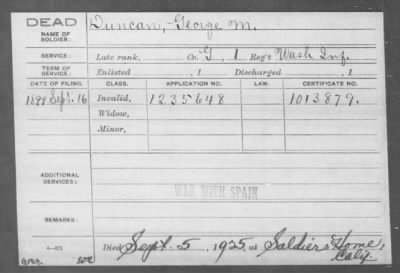 DEAD
NAME OF SOLDIER:
Duncan, George M.
SERVICE:
Late rank, Co. G, 1 Reg't Wash Inf.
TERM OF SERVICE:
Enlisted , 1 Discharged , 1
DATE OF FILING. CLASS. APPLICATION NO. LAW. CERTIFICATE NO.
1899 Sept. 16 Invalid, 1235648 1013879.
Widow,
Minor,
ADDITIONAL SERVICES:
WAR WITH SPAIN
REMARKS:
Died Sept. 5, 1925 at Soldiers Home,
Calif.